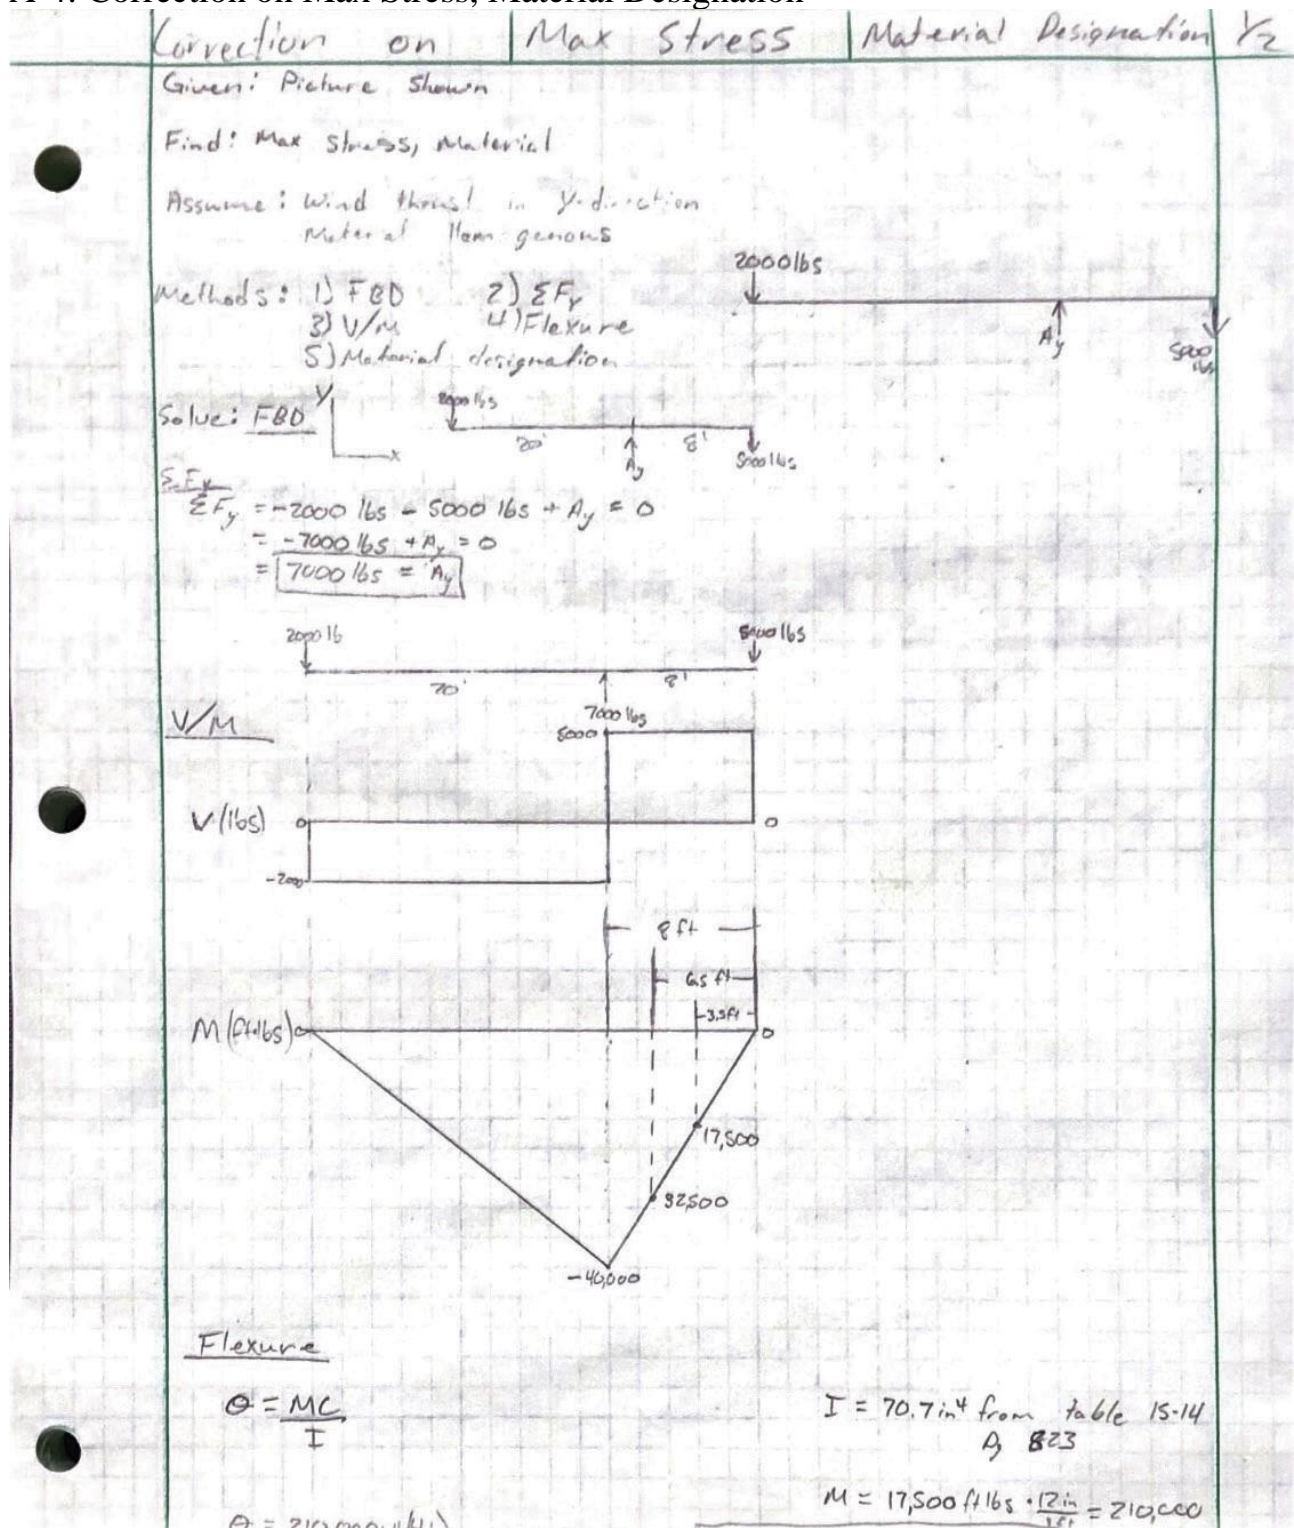 A-4: Correction on Max Stress, Material Designation
Correction on Max Stress Material Designation 1/2
Given: Picture Shown
Find: Max Stress, Material
Assume: Wind thrust in y-direction
Material Homogenous
2000 lbs
Methods: 1) FBD 2) ΣFy
3) V/M 4) Flexure
5) Material designation
Ay
5000 lbs
Solve: FBD
y
x
2000 lbs
20'
8'
Ay
5000 lbs
ΣFy
ΣFy = -2000 lbs - 5000 lbs + Ay = 0
= -7000 lbs + Ay = 0
= 7000 lbs = Ay
2000 lb
5000 lbs
20'
8'
V/M
7000 lbs
5000
V (lbs) 0
0
-2000
8 ft
6.5 ft
3.5 ft
M (ft·lbs) 0
0
17,500
32,500
-40,000
Flexure
Θ = MC
I
I = 70.7 in⁴ from table 15-14
Pg 823
M = 17,500 ft lbs · 12 in / 1 ft = 210,000